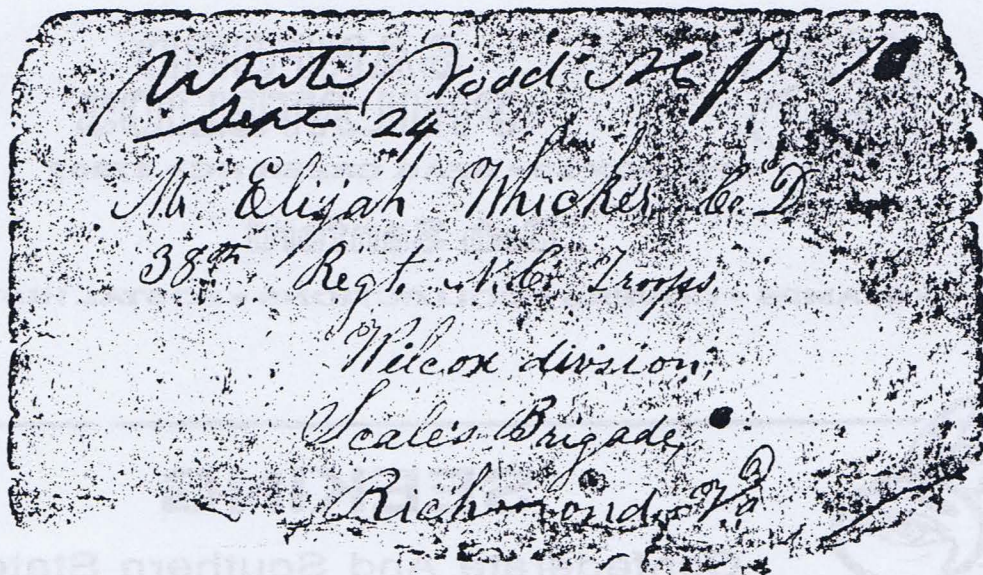 White Road NC P 10
Sept 24
Mr Elijah Whicker Co. D
38th Regt. N.C. Troops
Wilcox division,
Scales Brigade,
Richmond, Va
and Southern State